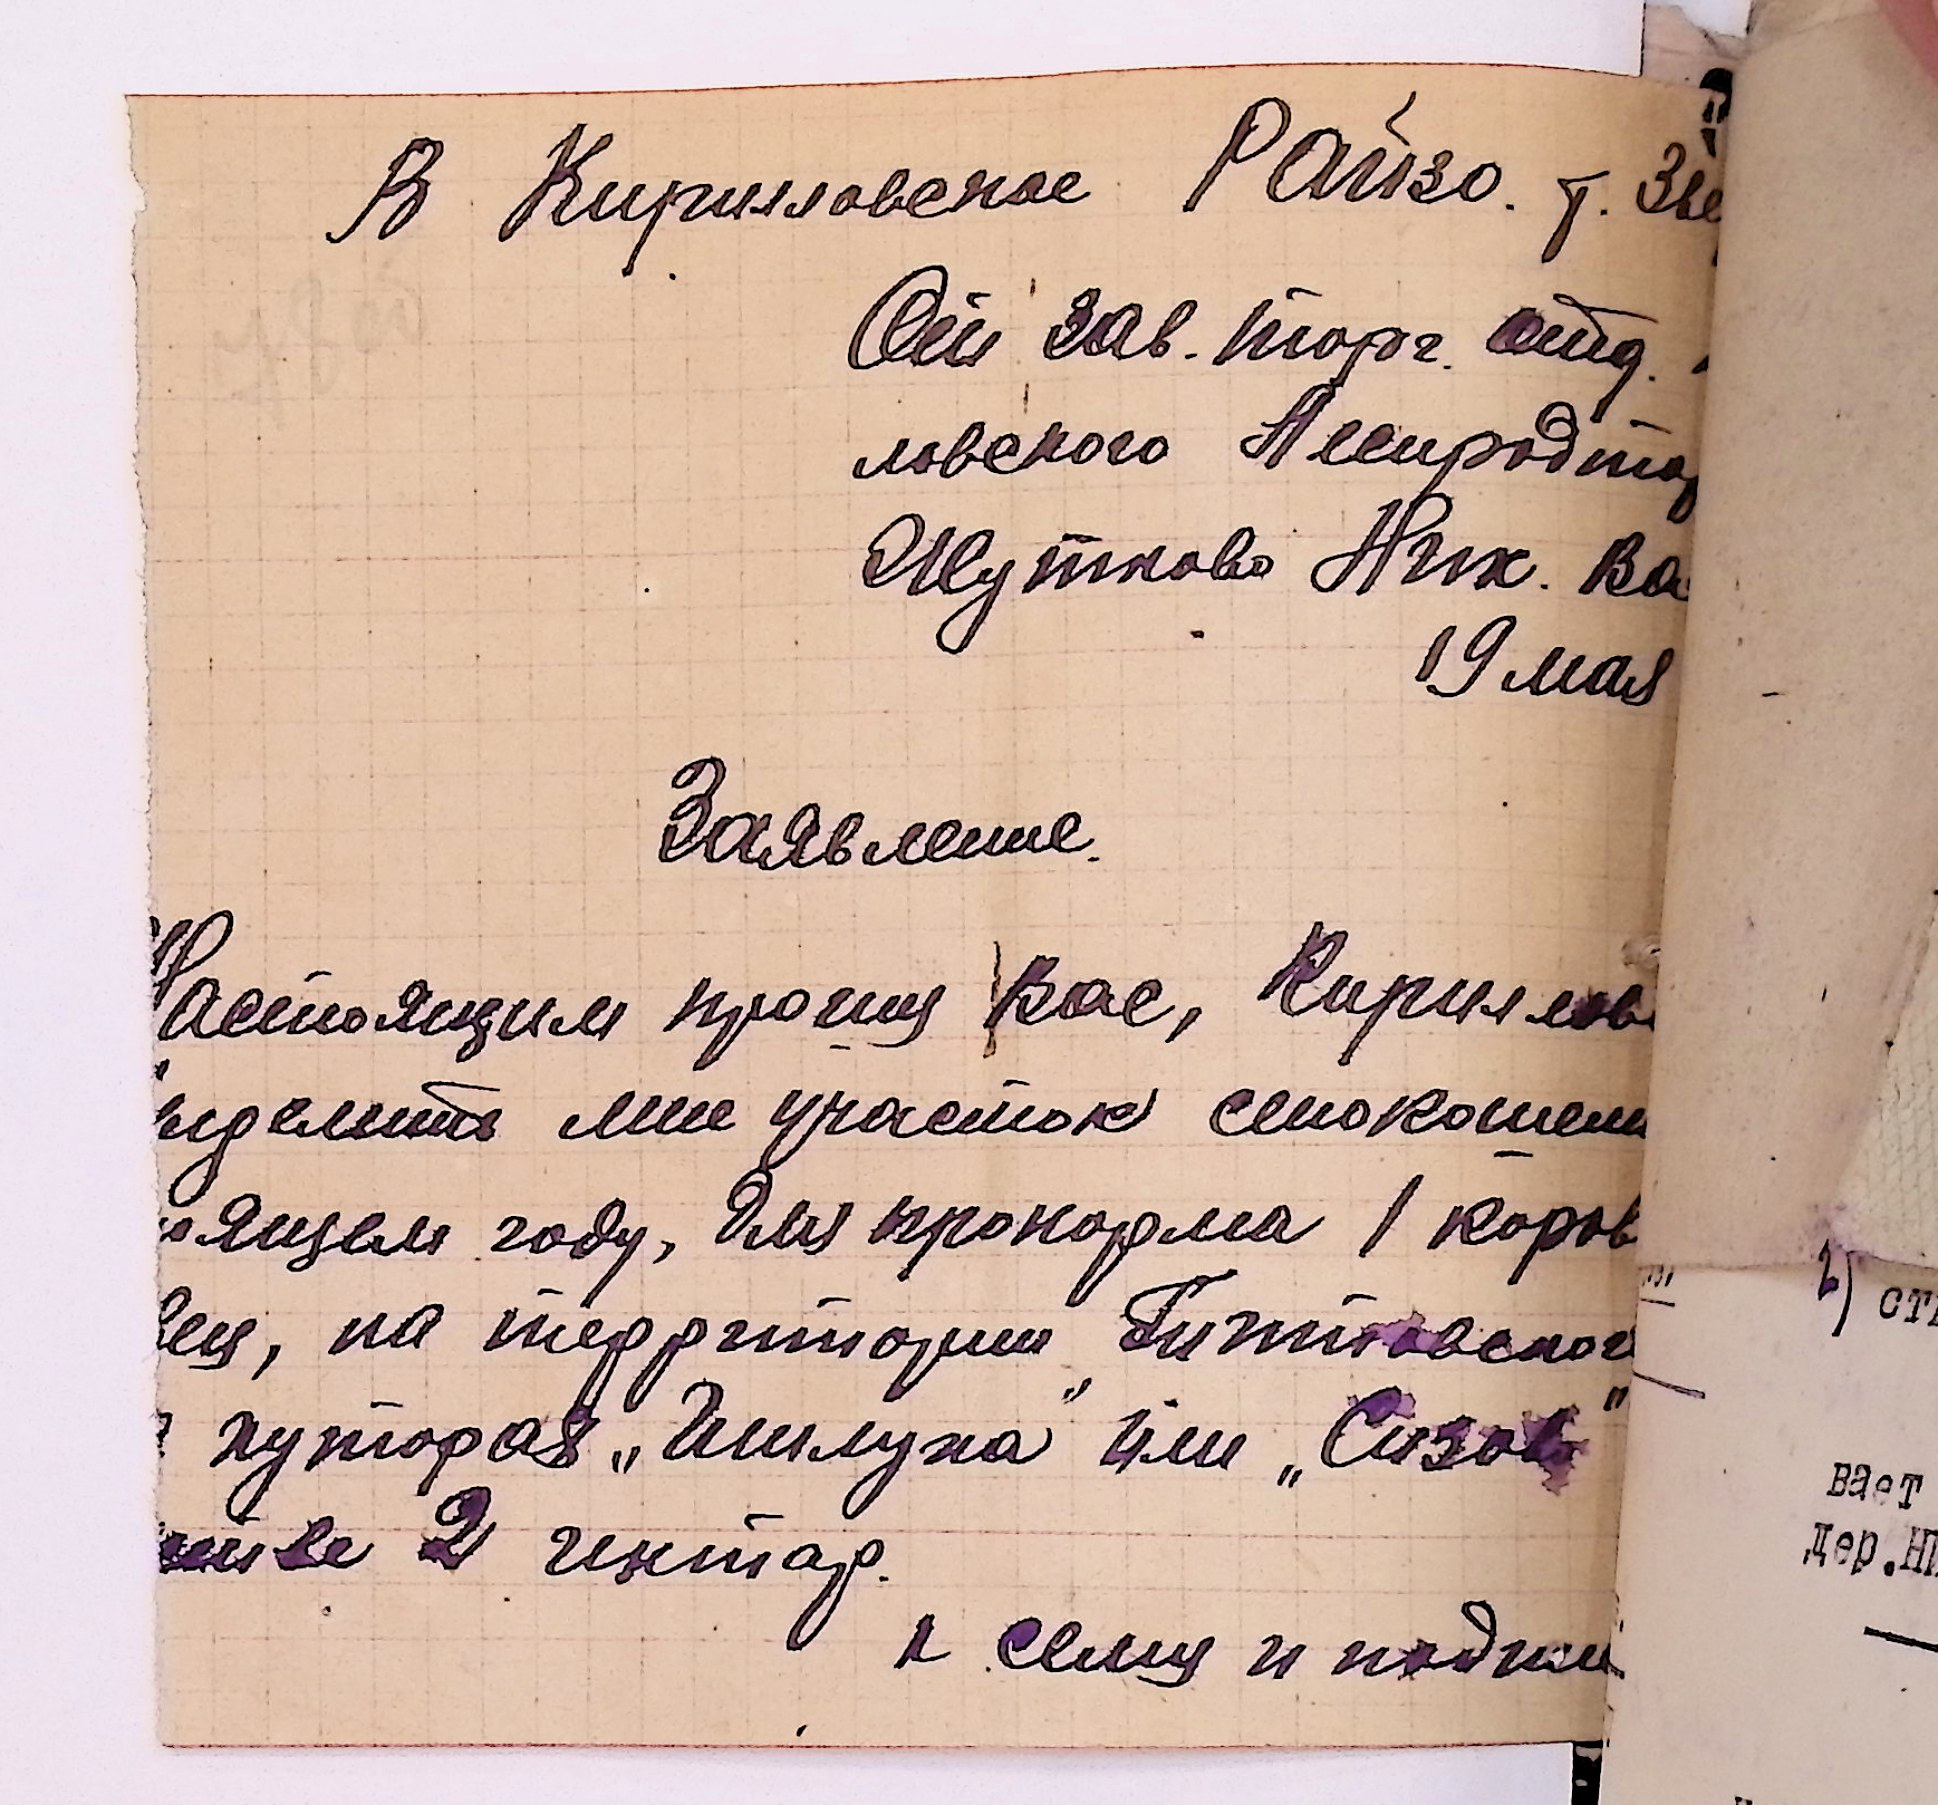 В Кирилловское Райзо. т. Зве
От зав. торг. отд.
ловского Леспродтор
Жуткова Ник. Ва
19 мая
Заявление.
Настоящим прошу Вас, Кириллов
выделить мне участок сенокошени
оящем году, для прокорма 1 коров
вец, на территории
хуторах „Шилуха" или „Сизов"
стве 2 гектар.
к сему и подпи
2) ст
вает
дер.Ни